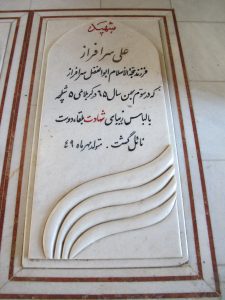 شهید
علی سرافراز
فرزند حجةالاسلام ابوالفضل سرافراز
که در سوم بهمن سال ۶۵ در کربلای ۵ شلمچه
با لباس زیبای شهادت بلقاء دوست
نائل گشت . متولد مهرماه ۴۹